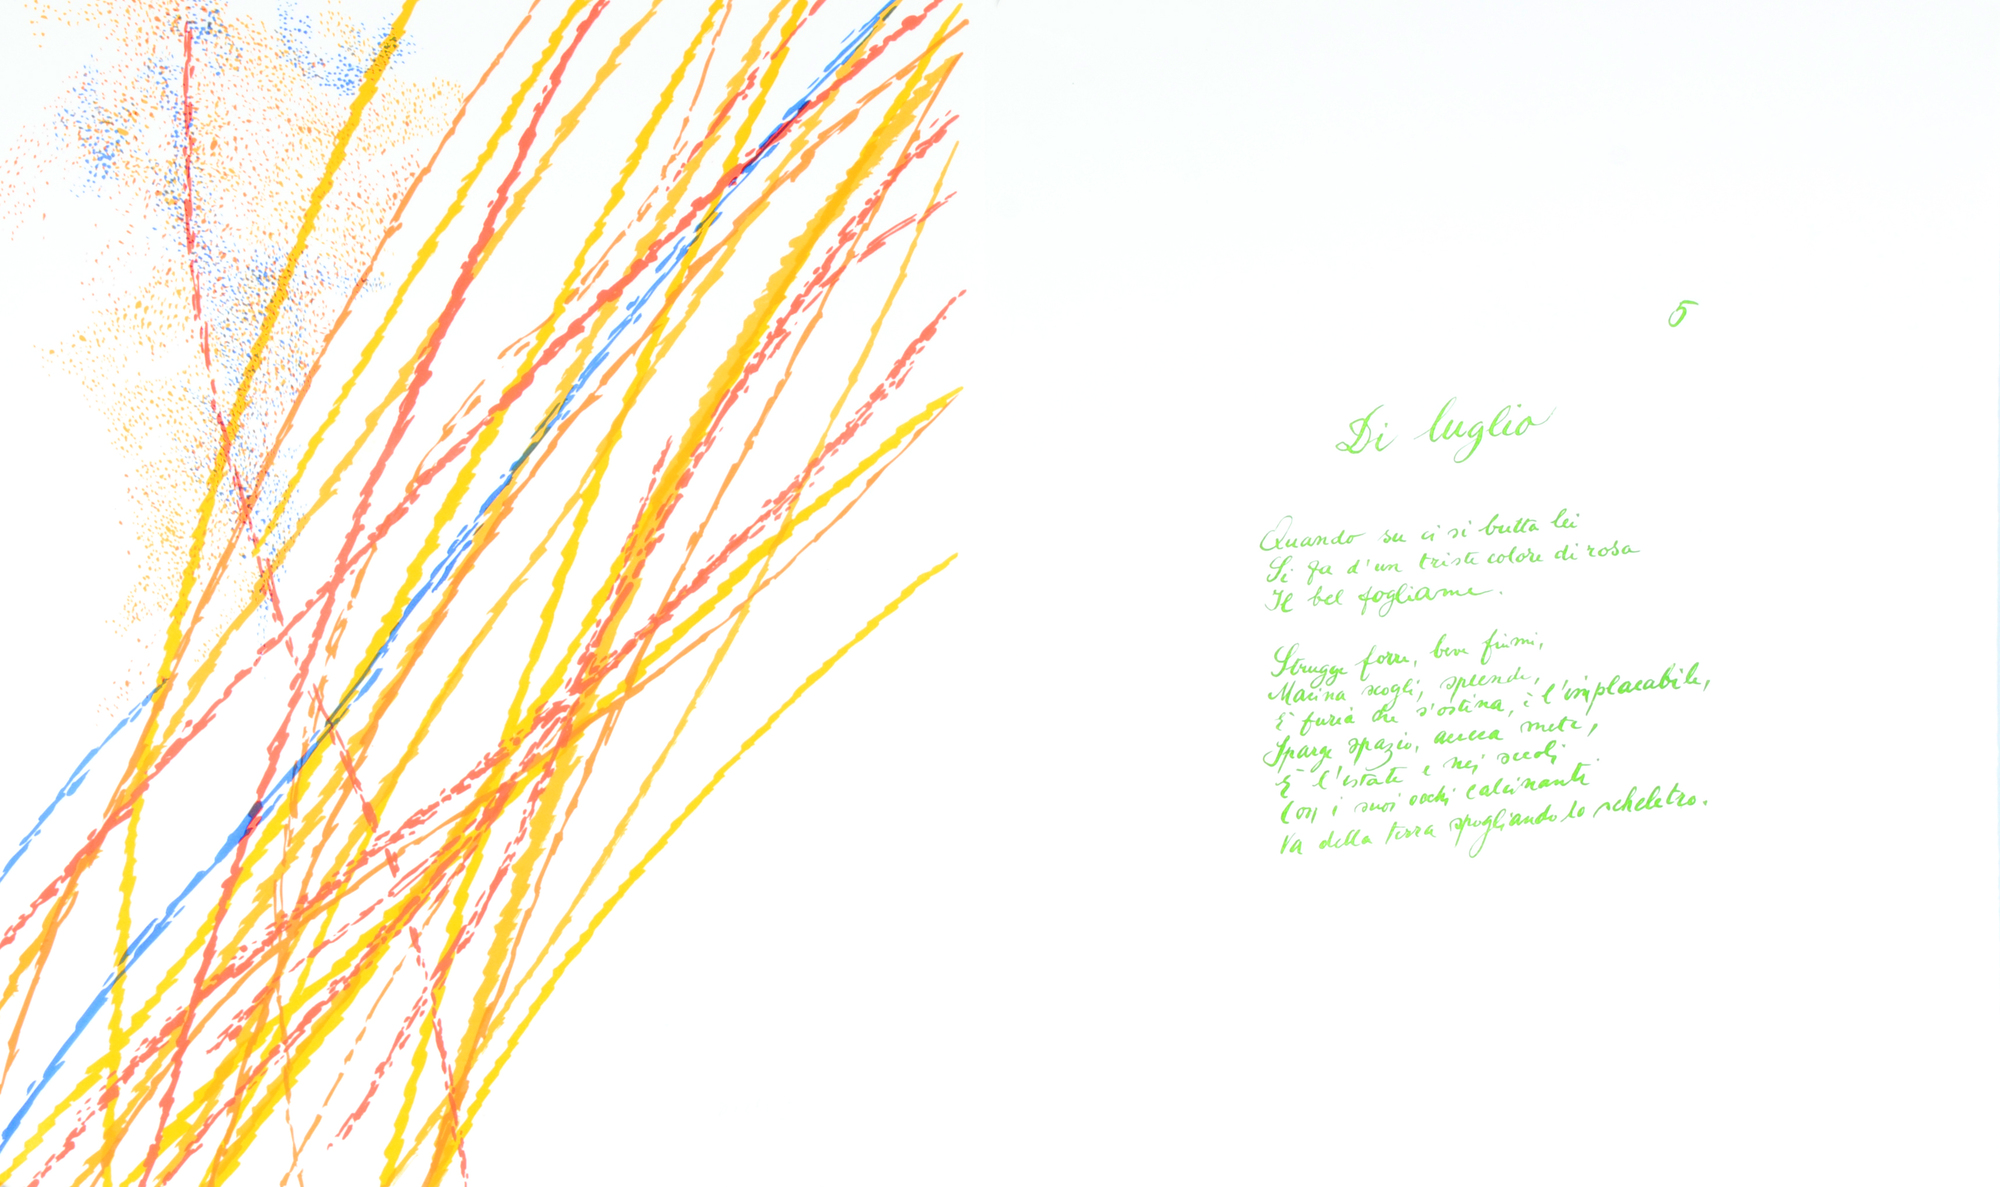 5
Di luglio
Quando su ci si butta lei
Si fa d'un triste colore di rosa
Il bel fogliame.
Strugge forre, beve fiumi,
Macina scogli, splende,
È furia che s'ostina, è l'implacabile,
Sparge spazio, acceca mete,
È l'estate e nei secoli
Con i suoi occhi calcinanti
Va della terra spogliando lo scheletro.